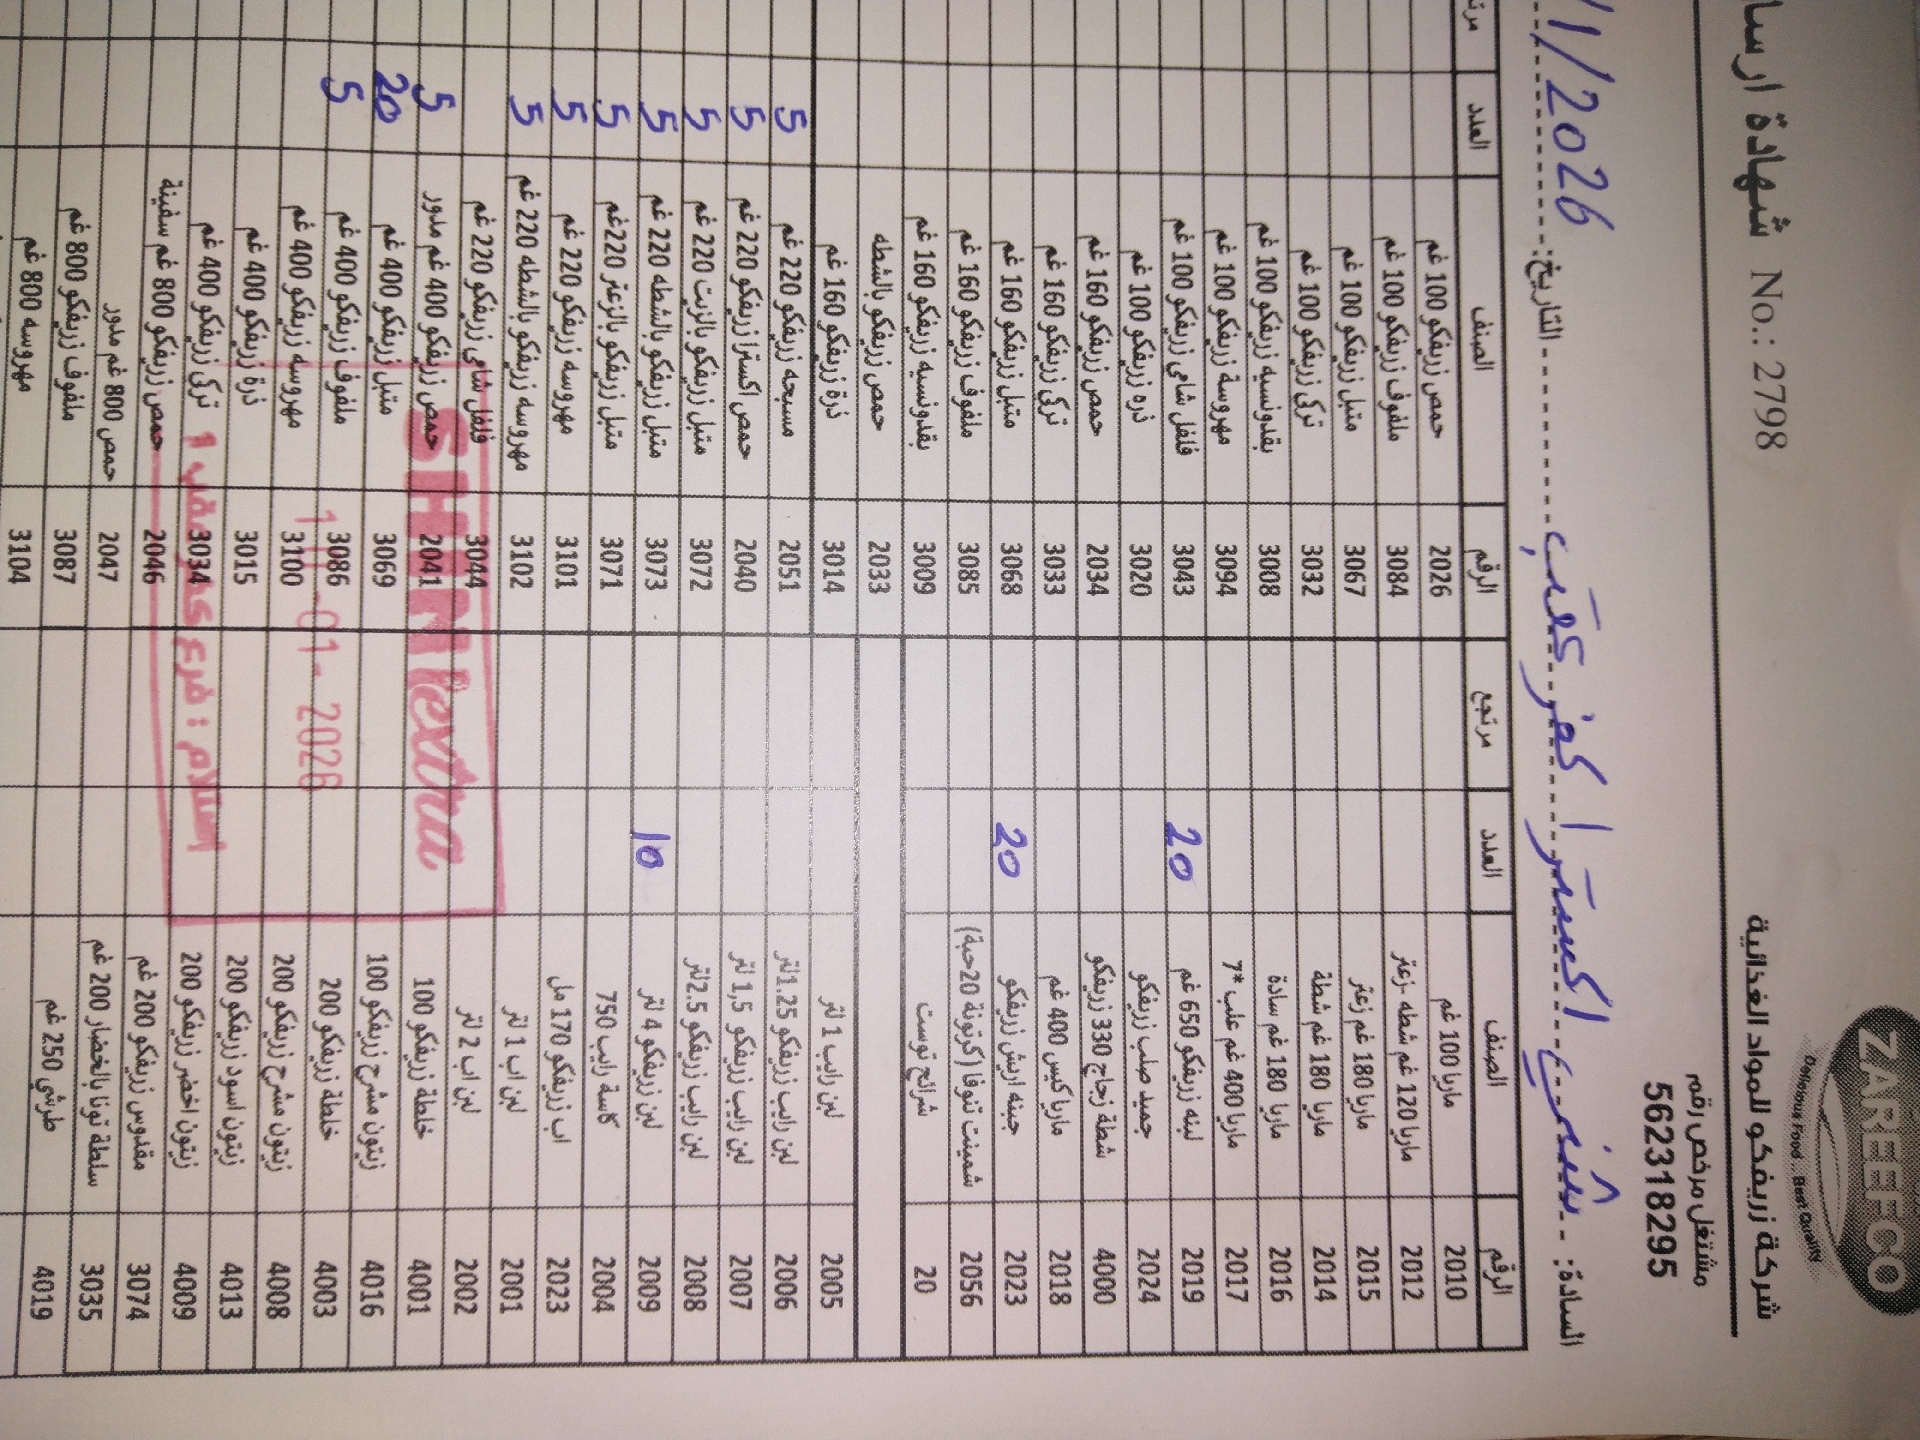 ZAREFCO
Delicious Food .. Best Quality
شركة زريفكو للمواد الغذائية
شهادة ارسا
No.: 2798
مشتغل مرخص رقم
562318295
السادة: شني اكسترا كفر عقب التاريخ: 1/2026
الرقم الصنف العدد مرتجع الرقم الصنف العدد
2010 ماريا 100 غم 2026 حمص زريفكو 100 غم
2012 ماريا 120 غم شطه -زعتر 3084 ملفوف زريفكو 100 غم
2015 ماريا 180 غم زعتر 3067 متبل زريفكو 100 غم
2014 ماريا 180 غم شطة 3032 تركي زريفكو 100 غم
2016 ماريا 180 غم سادة 3008 بقدونسيه زريفكو 100 غم
2017 ماريا 400 غم علب *7 3094 مهروسة زريفكو 100 غم
2019 لبنه زريفكو 650 غم 20 3043 فلفل شامي زريفكو 100 غم
2024 جميد صلب زريفكو 3020 ذره زريفكو 100 غم
4000 شطة زجاج 330 زريفكو 2034 حمص زريفكو 160 غم
2018 ماريا كيس 400 غم 3033 تركي زريفكو 160 غم
2023 جبنه اريش زريفكو 20 3068 متبل زريفكو 160 غم
2056 شمينت تنوفا (كرتونة 20حبة) 3085 ملفوف زريفكو 160 غم
20 شرائح توست 3009 بقدونسيه زريفكو 160 غم
2033 حمص زريفكو بالشطه
2005 لبن رايب 1 لتر 3014 ذرة زريفكو 160 غم
2006 لبن رايب زريفكو 1.25لتر 2051 مسبحه زريفكو 220 غم 5
2007 لبن رايب زريفكو 1,5 لتر 2040 حمص اكسترا زريفكو 220 غم 5
2008 لبن رايب زريفكو 2.5لتر 3072 متبل زريفكو بالزيت 220 غم 5
2009 لبن زريفكو 4 لتر 10 3073 متبل زريفكو بالشطه 220 غم 5
2004 كاسة رايب 750 3071 متبل زريفكو بالزعتر 220غم 5
2023 اب زريفكو 170 مل 3101 مهروسه زريفكو 220 غم 5
2001 لبن اب 1 لتر 3102 مهروسه زريفكو بالشطه 220 غم 5
2002 لبن اب 2 لتر 3044 فلفل شامي زريفكو 220 غم
4001 خلطة زريفكو 100 2041 حمص زريفكو 400 غم مدور 5
4016 زيتون مشرح زريفكو 100 3069 متبل زريفكو 400 غم 20
4003 خلطة زريفكو 200 3086 ملفوف زريفكو 400 غم 5
4008 زيتون مشرح زريفكو 200 3100 مهروسه زريفكو 400 غم
4013 زيتون اسود زريفكو 200 3015 ذرة زريفكو 400 غم
4009 زيتون اخضر زريفكو 200 3034 تركي زريفكو 400 غم
3074 مقدوس زريفكو 200 غم 2046 حمص زريفكو 800 غم سفينة
3035 سلطة تونا بالخضار 200 غم 2047 حمص 800 غم مدور
4019 طرشي 250 غم 3087 ملفوف زريفكو 800 غم
3104 مهروسه 800 غم
SHINI extra
01- 2026
استلام : فرع كفر عقب 1